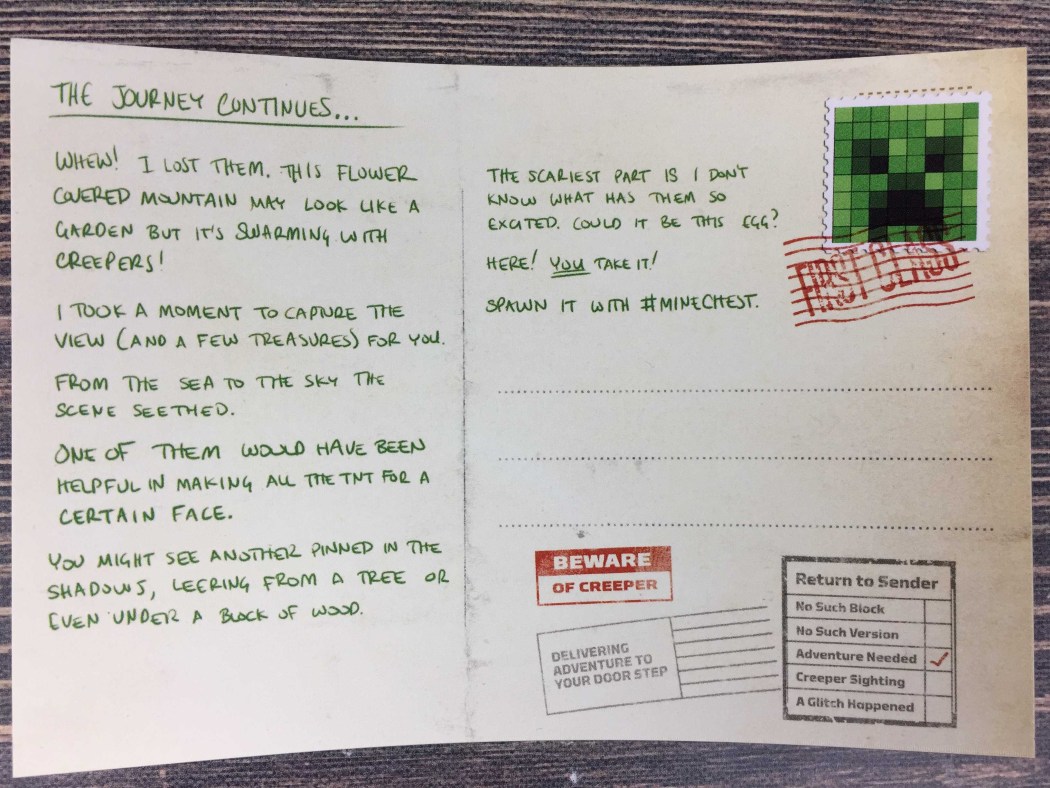 THE JOURNEY CONTINUES...
WHEW! I LOST THEM. THIS FLOWER
COVERED MOUNTAIN MAY LOOK LIKE A
GARDEN BUT IT'S SWARMING WITH
CREEPERS!
I TOOK A MOMENT TO CAPTURE THE
VIEW (AND A FEW TREASURES) FOR YOU.
FROM THE SEA TO THE SKY THE
SCENE SEETHED.
ONE OF THEM WOULD HAVE BEEN
HELPFUL IN MAKING ALL THE TNT FOR A
CERTAIN FACE.
YOU MIGHT SEE ANOTHER PINNED IN THE
SHADOWS, LEERING FROM A TREE OR
EVEN UNDER A BLOCK OF WOOD.
THE SCARIEST PART IS I DON'T
KNOW WHAT HAS THEM SO
EXCITED. COULD IT BE THIS EGG?
HERE! YOU TAKE IT!
SPAWN IT WITH #MINECHEST.
FIRST CLASS
BEWARE
OF CREEPER
DELIVERING
ADVENTURE TO
YOUR DOOR STEP
Return to Sender
No Such Block
No Such Version
Adventure Needed ✓
Creeper Sighting
A Glitch Happened